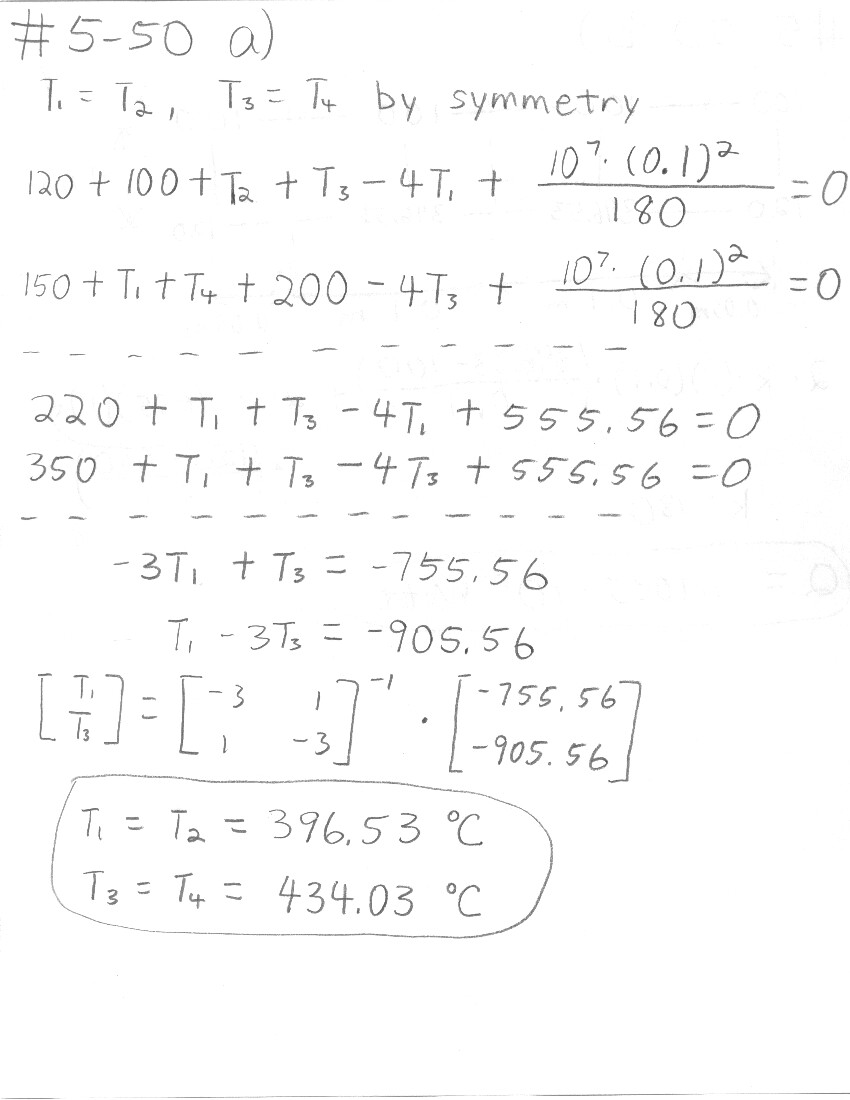 #5-50 a)
T₁ = T₂, T₃ = T₄ by symmetry
120 + 100 + T₂ + T₃ - 4T₁ + 10⁷·(0.1)²/180 = 0
150 + T₁ + T₄ + 200 - 4T₃ + 10⁷·(0.1)²/180 = 0
- - - - - - - - - - - -
220 + T₁ + T₃ - 4T₁ + 555.56 = 0
350 + T₁ + T₃ - 4T₃ + 555.56 = 0
- - - - - - - - - - - -
-3T₁ + T₃ = -755.56
T₁ - 3T₃ = -905.56
[T₁ / T₃] = [-3 1 / 1 -3]⁻¹ · [-755.56 / -905.56]
T₁ = T₂ = 396.53 °C
T₃ = T₄ = 434.03 °C